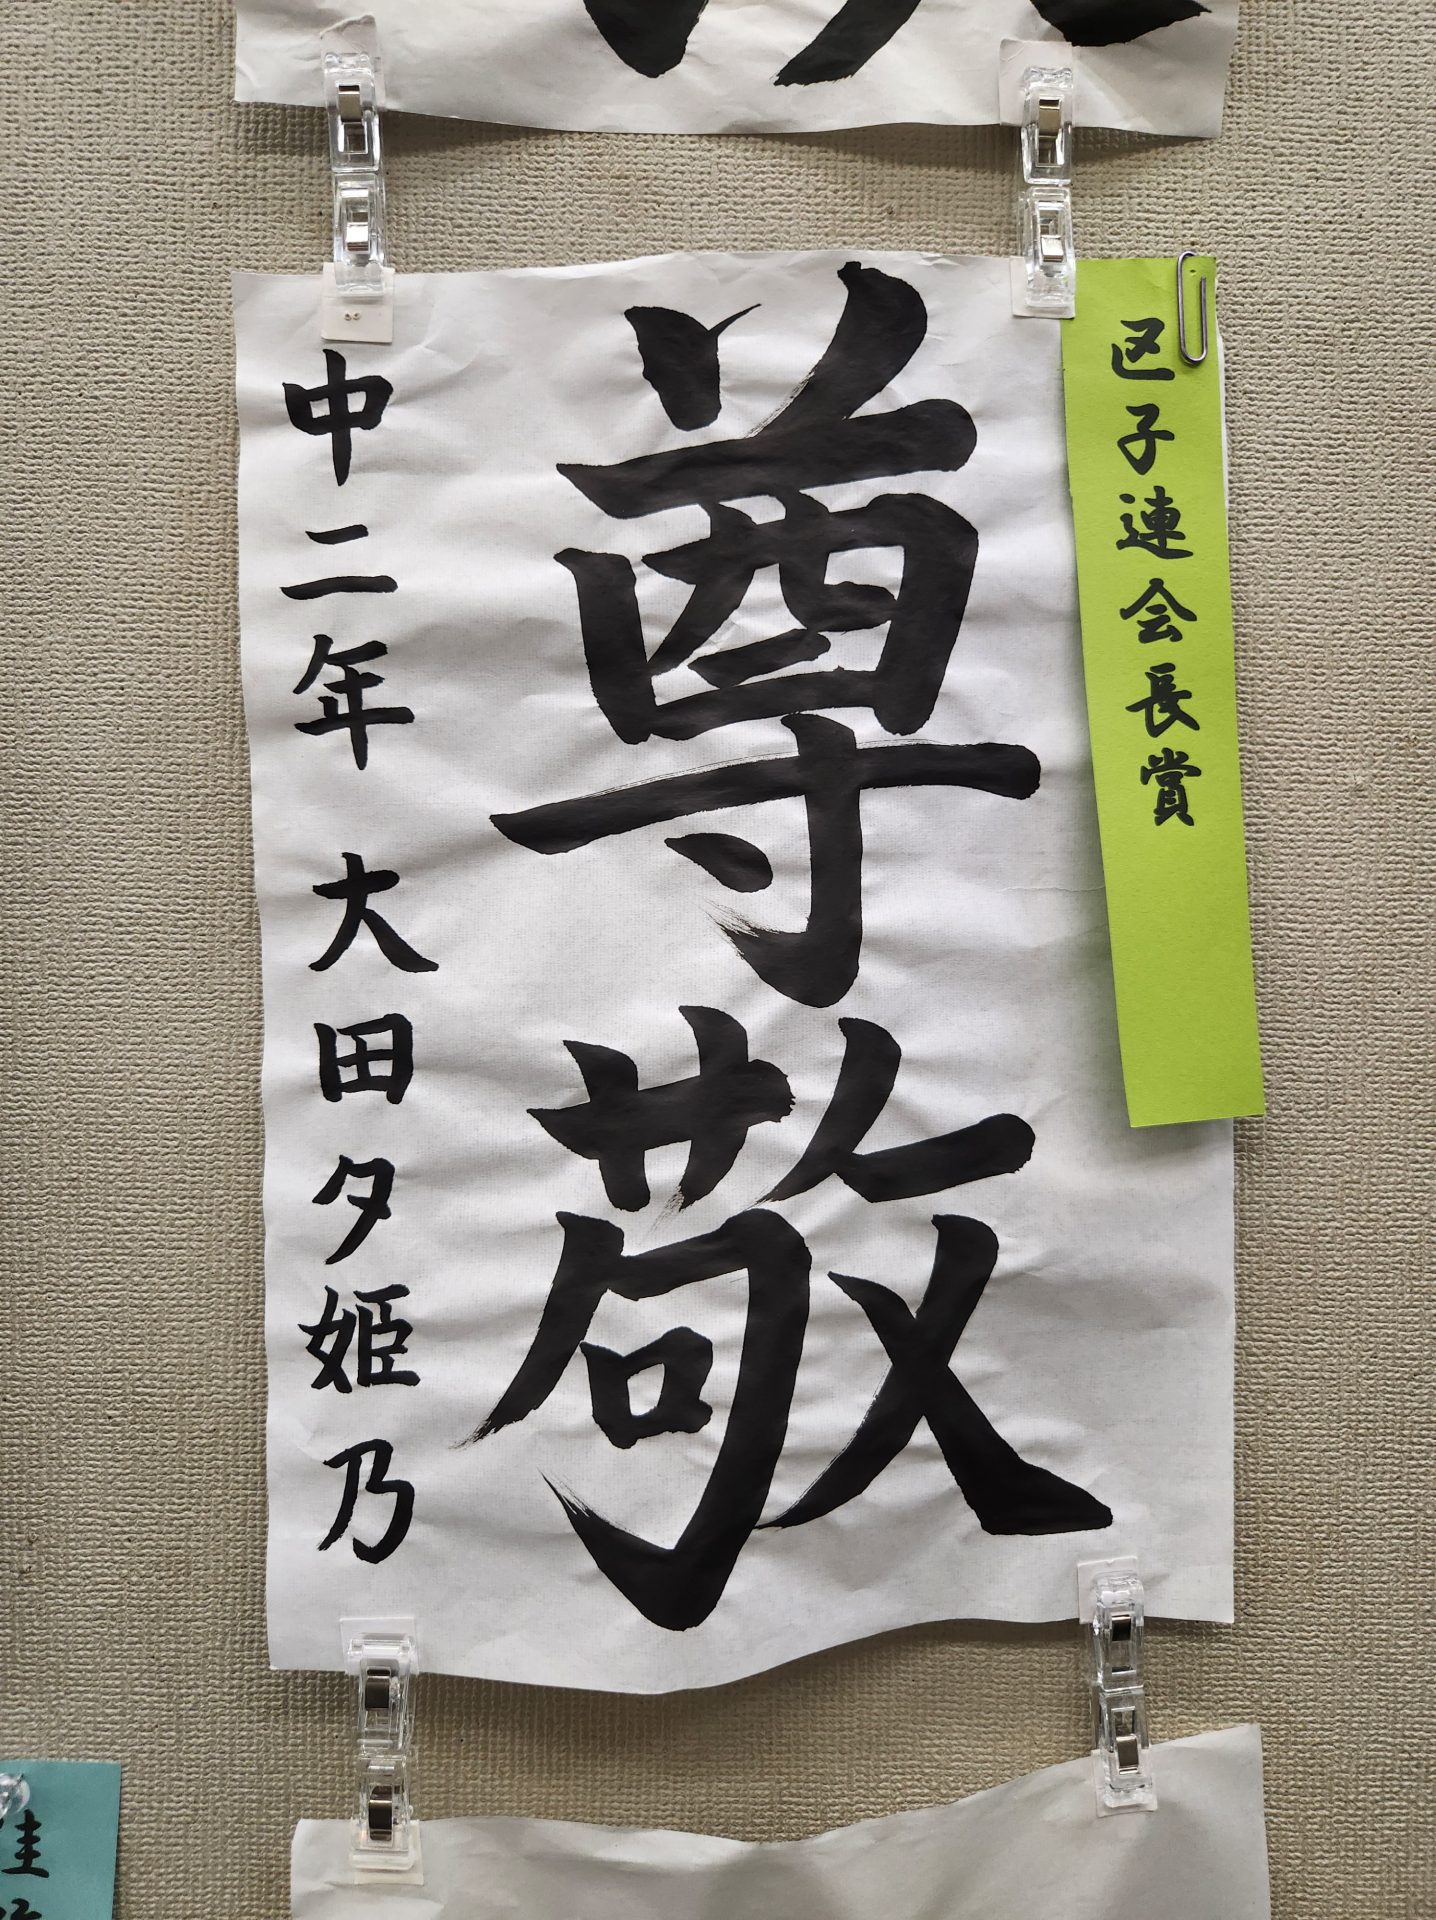 区子連会長賞
尊敬
中二年 大田夕姫乃